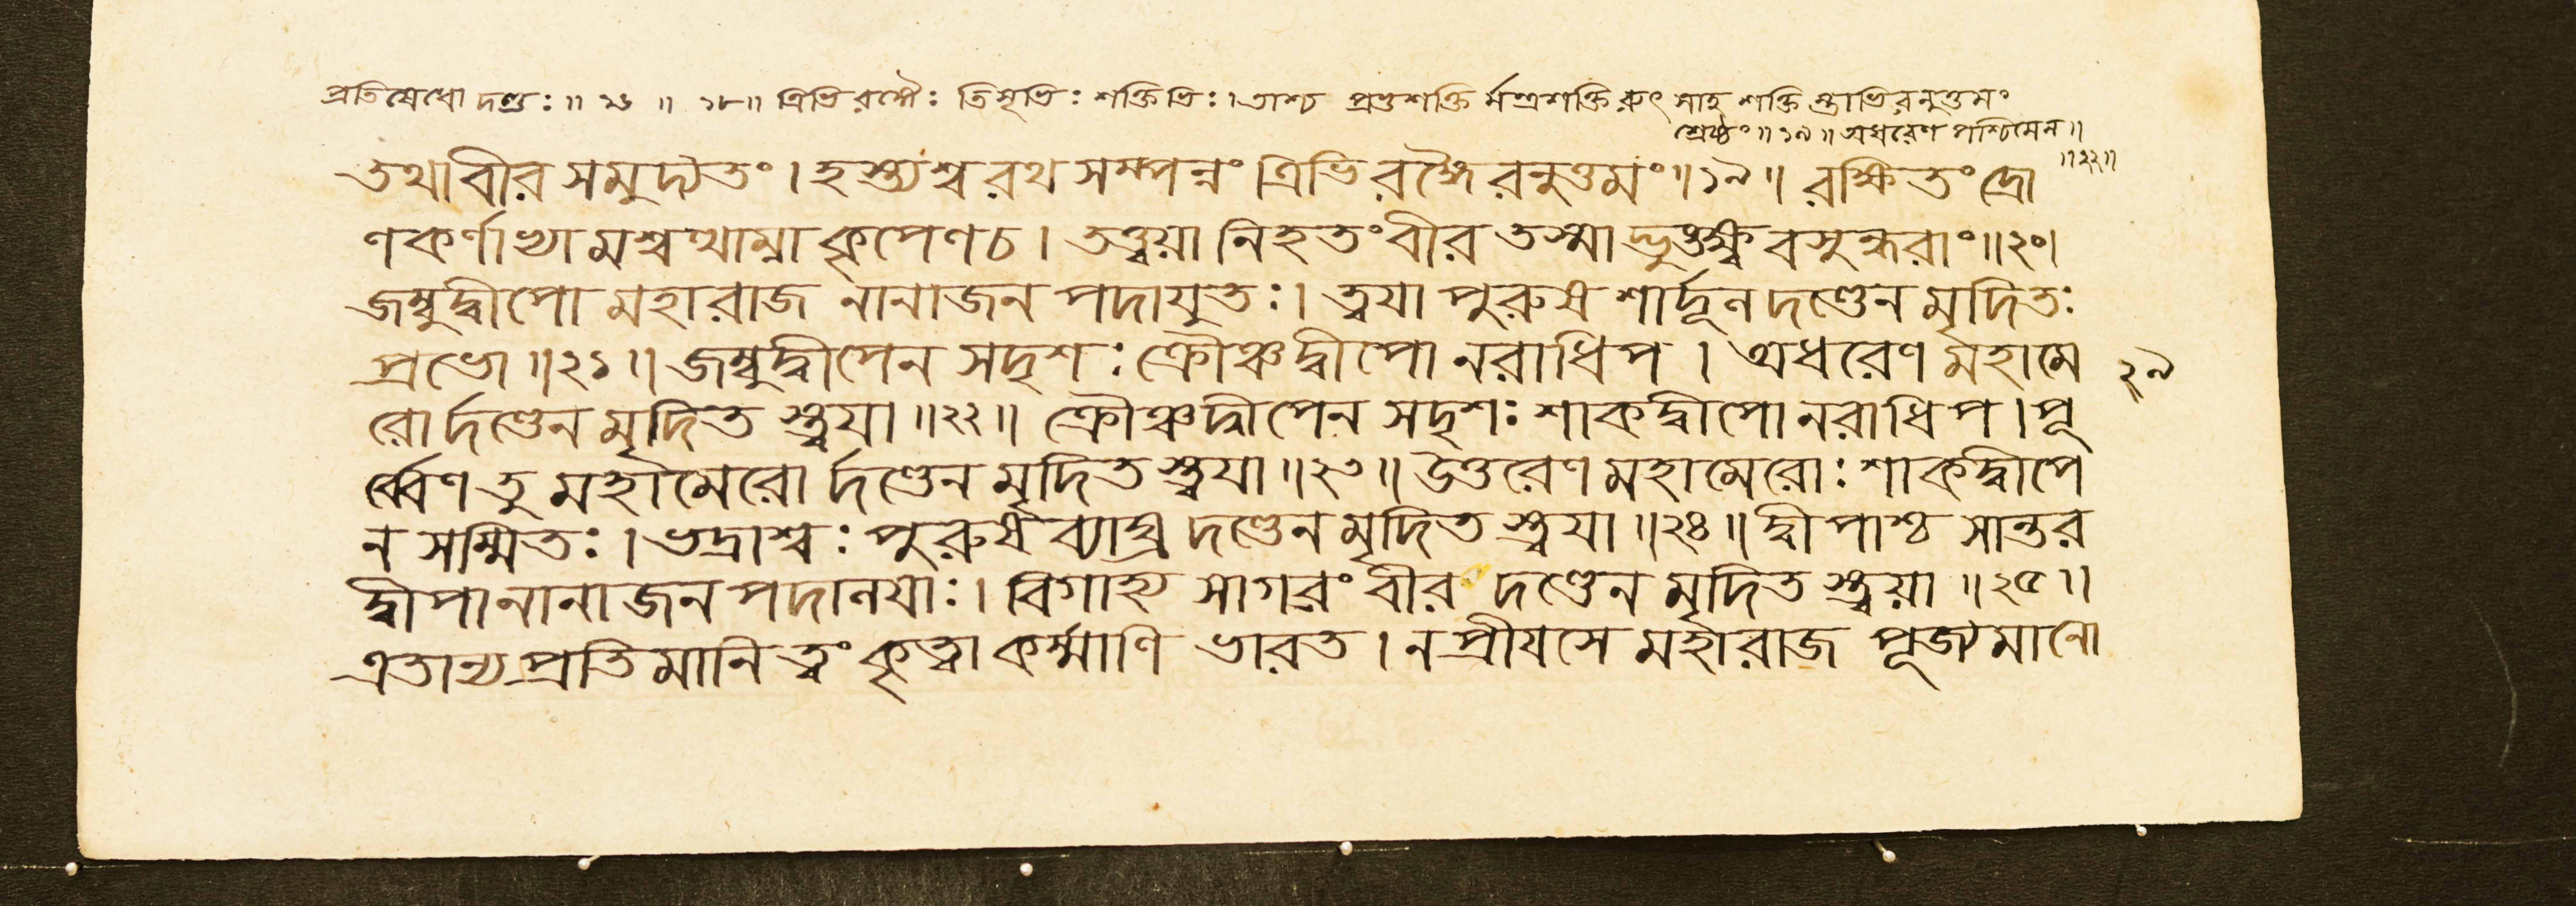 প্রতিষেধো দণ্ডঃ ॥ ১৬ ॥ ১৮ ॥ ত্রিভিরঙ্গৈঃ তিসৃভিঃ শক্তিভিঃ । তাশ্চ প্রভুশক্তি র্মন্ত্রশক্তিরুৎ সাহ শক্তি স্তাভিরনুত্তমং
শ্রেষ্ঠং ॥ ১৯ ॥ অধরেণ পশ্চিমেন ॥
॥ ২২ ॥
তথা বীর সমুদ্যতং । হস্ত্যশ্ব রথ সম্পন্নং ত্রিভি রঙ্গৈ রনুত্তমং ॥ ১৯ ॥ রক্ষিতং দ্রো
ণকর্ণাভ্যামশ্বত্থাম্না কৃপেণ চ । তত্ত্বয়া নিহতং বীর তস্মাদ্ভুঙ্ক্ষ্ব বসুন্ধরাং ॥ ২০ ।
জম্বুদ্বীপো মহারাজ নানাজন পদাযুতঃ । ত্বযা পুরুষ শার্দ্দূল দণ্ডেন মৃদিতঃ
প্রভো ॥ ২১ ॥ জম্বুদ্বীপেন সদৃশঃ ক্রৌঞ্চদ্বীপো নরাধিপ । অধরেণ মহামে
২৯
রো র্দণ্ডেন মৃদিত স্ত্বযা ॥ ২২ ॥ ক্রৌঞ্চদ্বীপেন সদৃশঃ শাকদ্বীপো নরাধিপ । পূ
র্ব্বেণ তু মহামেরো র্দণ্ডেন মৃদিত স্ত্বযা ॥ ২৩ ॥ উত্তরেণ মহামেরোঃ শাকদ্বীপে
ন সম্মিতঃ । ভদ্রাশ্বঃ পুরুষ ব্যাঘ্র দণ্ডেন মৃদিত স্ত্বযা ॥ ২৪ ॥ দ্বীপাশ্চ সান্তর
দ্বীপা নানা জন পদালযাঃ । বিগাহ্য সাগরং বীর দণ্ডেন মৃদিত স্ত্বয়া ॥ ২৫ ॥
এতান্য প্রতিমানি ত্বং কৃত্বা কর্ম্মাণি ভারত । ন প্রীযসে মহারাজ পূজ্যমানো